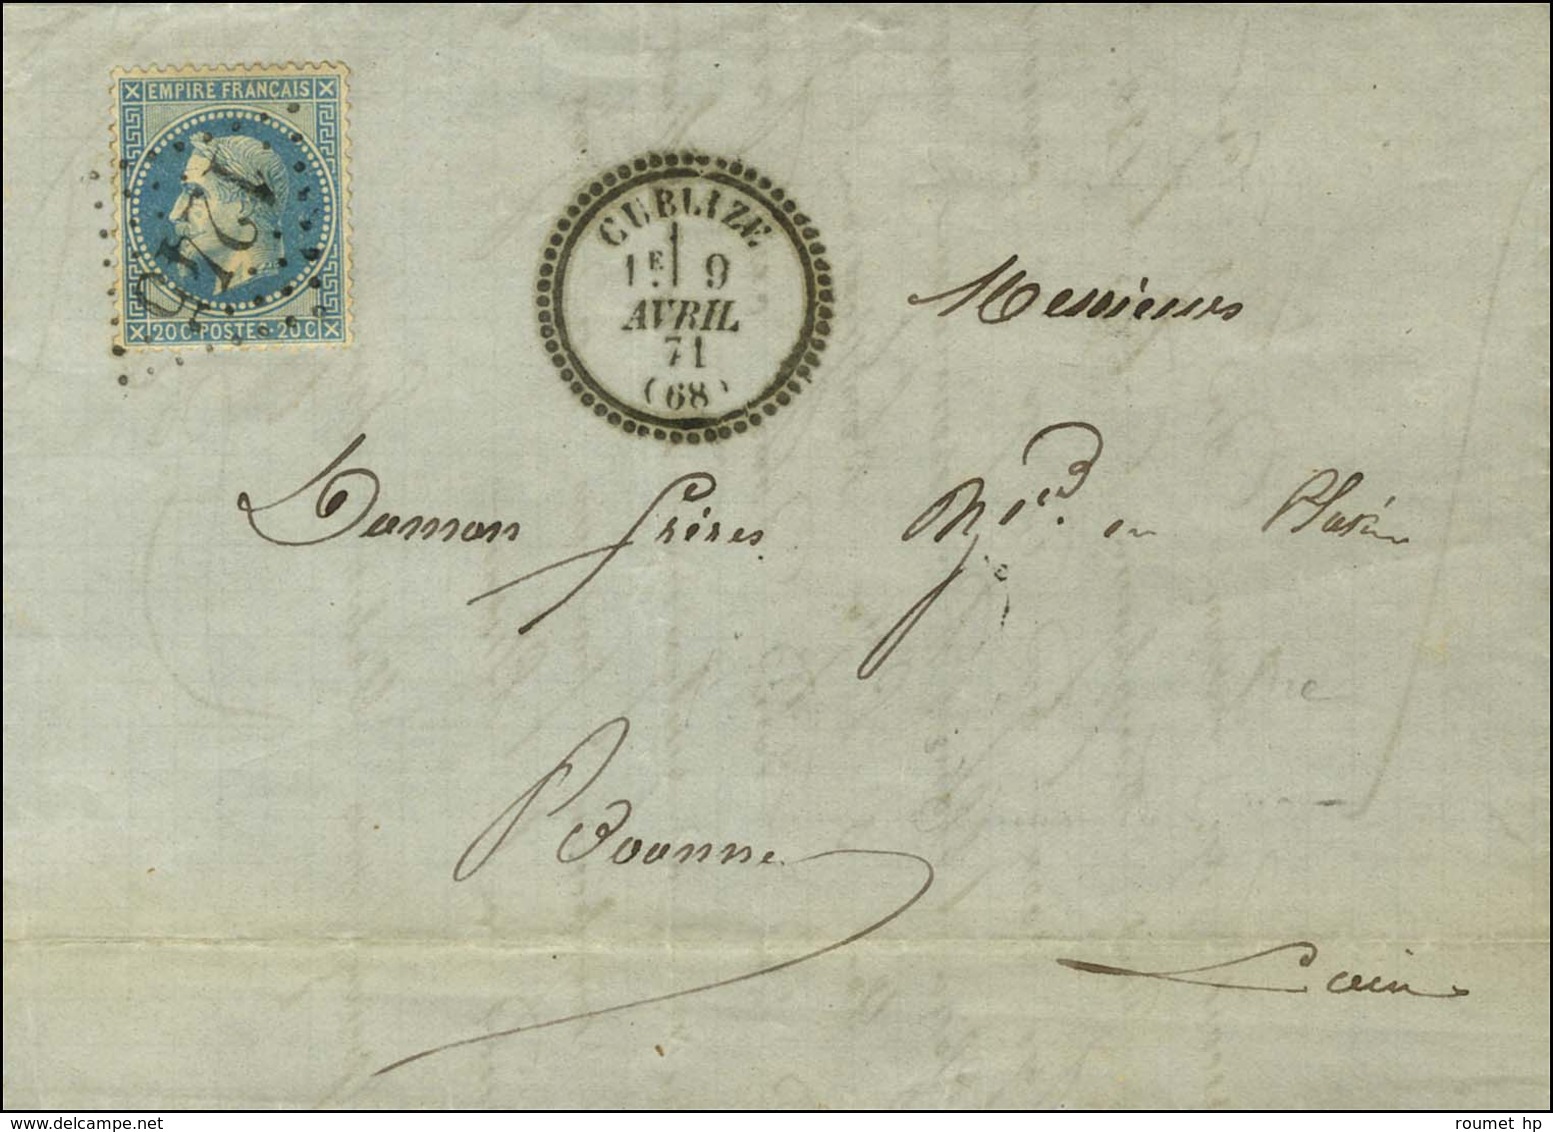 EMPIRE FRANCAIS
1245
20 C · POSTES · 20 C
CUBLIZE
1E 9
AVRIL
71
(68)
Messieurs
Damon frères
en
Rouanne
www.delcampe.net
roumet hp